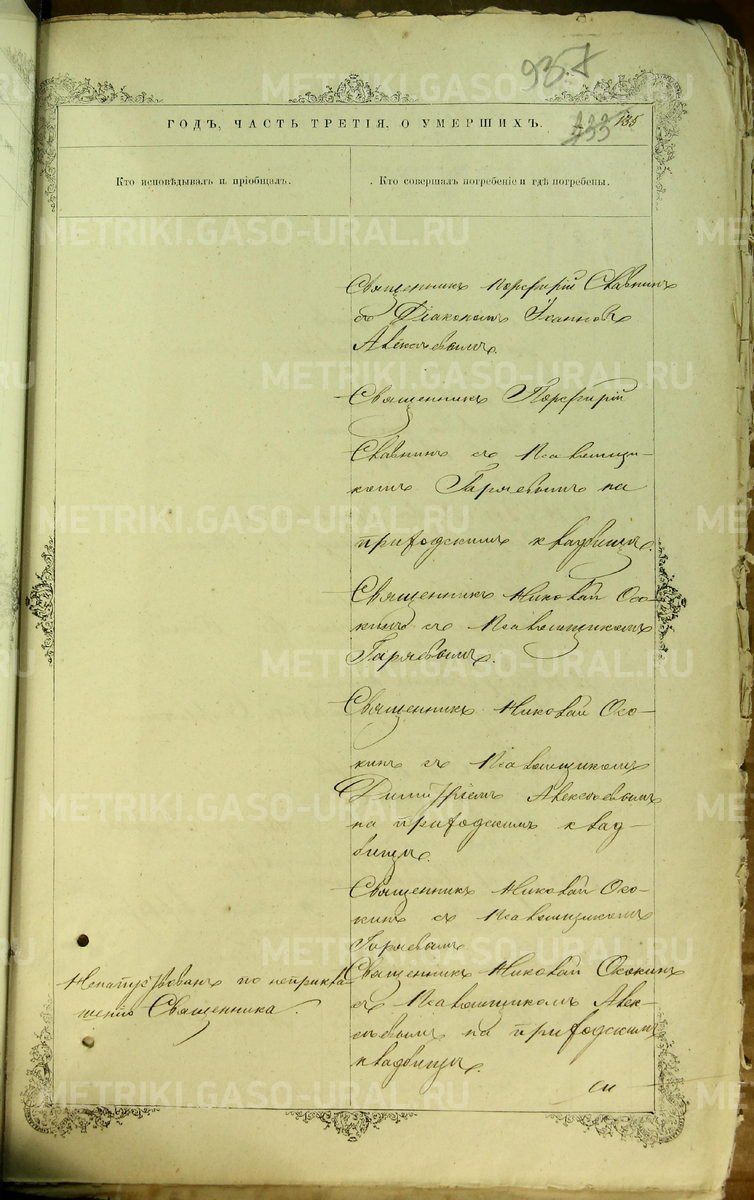 93.
135
ГОДЪ, ЧАСТЬ ТРЕТІЯ, О УМЕРШИХЪ.
Кто исповѣдывалъ и пріобщалъ.
Кто совершалъ погребеніе и гдѣ погребены.
Священникъ Порфирій Славнинъ
съ Діакономъ Іоанномъ
Алексѣевымъ.
Священникъ Порфирій
Славнинъ съ Псаломщи-
комъ Гаряевымъ на
приходскимъ кладбищѣ.
Священникъ Николай Осо-
кинъ съ Псаломщикомъ
Гаряевымъ.
Священникъ Николай Осо-
кинъ съ Псаломщикомъ
Димитріемъ Алексѣевымъ
на приходскимъ клад-
бищѣ.
Священникъ Николай Осо-
кинъ съ Псаломщикомъ
Гаряевымъ
Ненапутствованъ по неприкла-
шенію Священника.
Священникъ Николай Осокинъ
съ Псаломщикомъ Алек-
сѣевымъ на приходскимъ
кладбищѣ.
METRIKI.GASO-URAL.RU